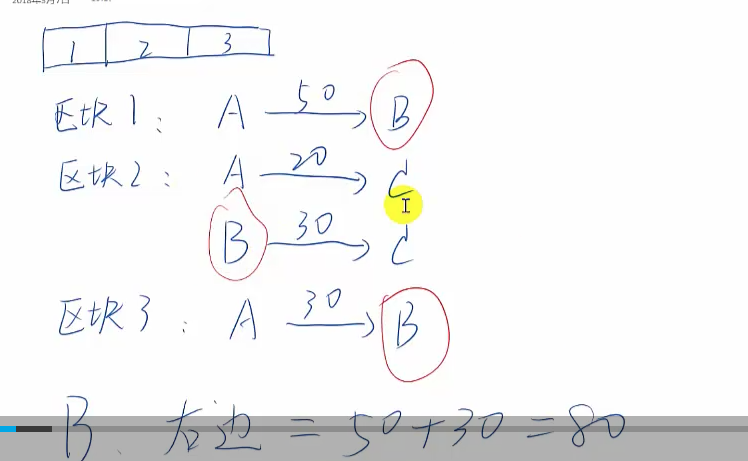 1 2 3
区块1: A 50→ B
区块2: A 20→ C
B 30→ C
区块3: A 30→ B
B、右边 = 50+30=80